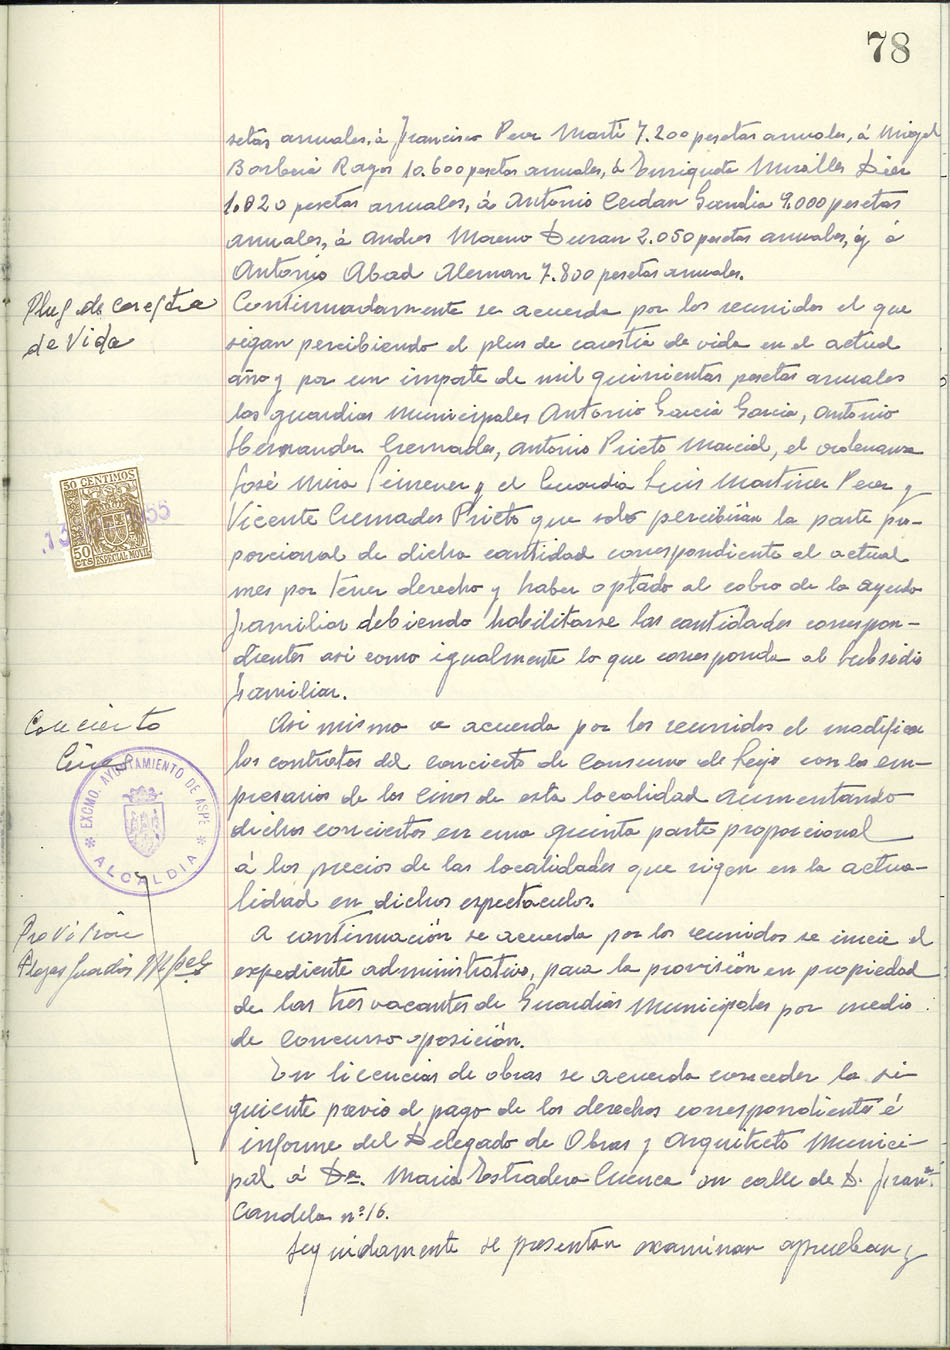 78
setas anuales, á Francisco Perez Martí 7.200 pesetas anuales, á Miguel
Borbeciá Razos 10.600 pesetas anuales, á Enriqueta Miralles Diez
1.820 pesetas anuales, á Antonio Cerdan Gandia 9.000 pesetas
anuales, á Andres Moreno Duran 2.050 pesetas anuales, y á
Antonio Abad Aleman 7.800 pesetas anuales.
Plus de carestia
de Vida
Continuadamente se acuerda por los reunidos el que
sigan percibiendo el plus de carestia de vida en el actual
año y por un importe de mil quinientas pesetas anuales
los guardias Municipales Antonio Garcia Garcia, Antonio
Hernandez Cremades, Antonio Prieto Marcial, el ordenanza
José Mira Gimenez y el Guardia Luis Martinez Perez y
Vicente Cremades Prieto que solo percibirán la parte pro-
porcional de dicha cantidad correspondiente al actual
mes por tener derecho y haber optado al cobro de la ayuda
familiar debiendo habilitarse las cantidades correspon-
dientes asi como igualmente lo que corresponda al subsidio
familiar.
50 CENTIMOS
50
CTS
ESPECIAL MOVIL
13 1955
Concierto
Cines
EXCMO. AYUNTAMIENTO DE ASPE
ALCALDIA
Asi mismo se acuerda por los reunidos el modificar
los contratos del concierto de Consumo de Lujo con los em-
presarios de los Cines de esta localidad aumentando
dichos conciertos en una quinta parte proporcional
á los precios de las localidades que rigen en la actua-
lidad en dichos espectaculos.
Provisión
Plazas Guardias Mpales
A continuación se acuerda por los reunidos se inicie el
expediente administrativo, para la provisión en propiedad
de las tres vacantes de Guardias Municipales por medio
de concurso-oposición.
En licencias de obras se acuerda conceder la si-
guiente previo el pago de los derechos correspondiente é
informe del Delegado de Obras y Arquitecto Munici-
pal á Dª. Maria Estradera Cuenca en calle de D. Fran.co
Candela nº 16.
Seguidamente se presentan examinan aprueban y